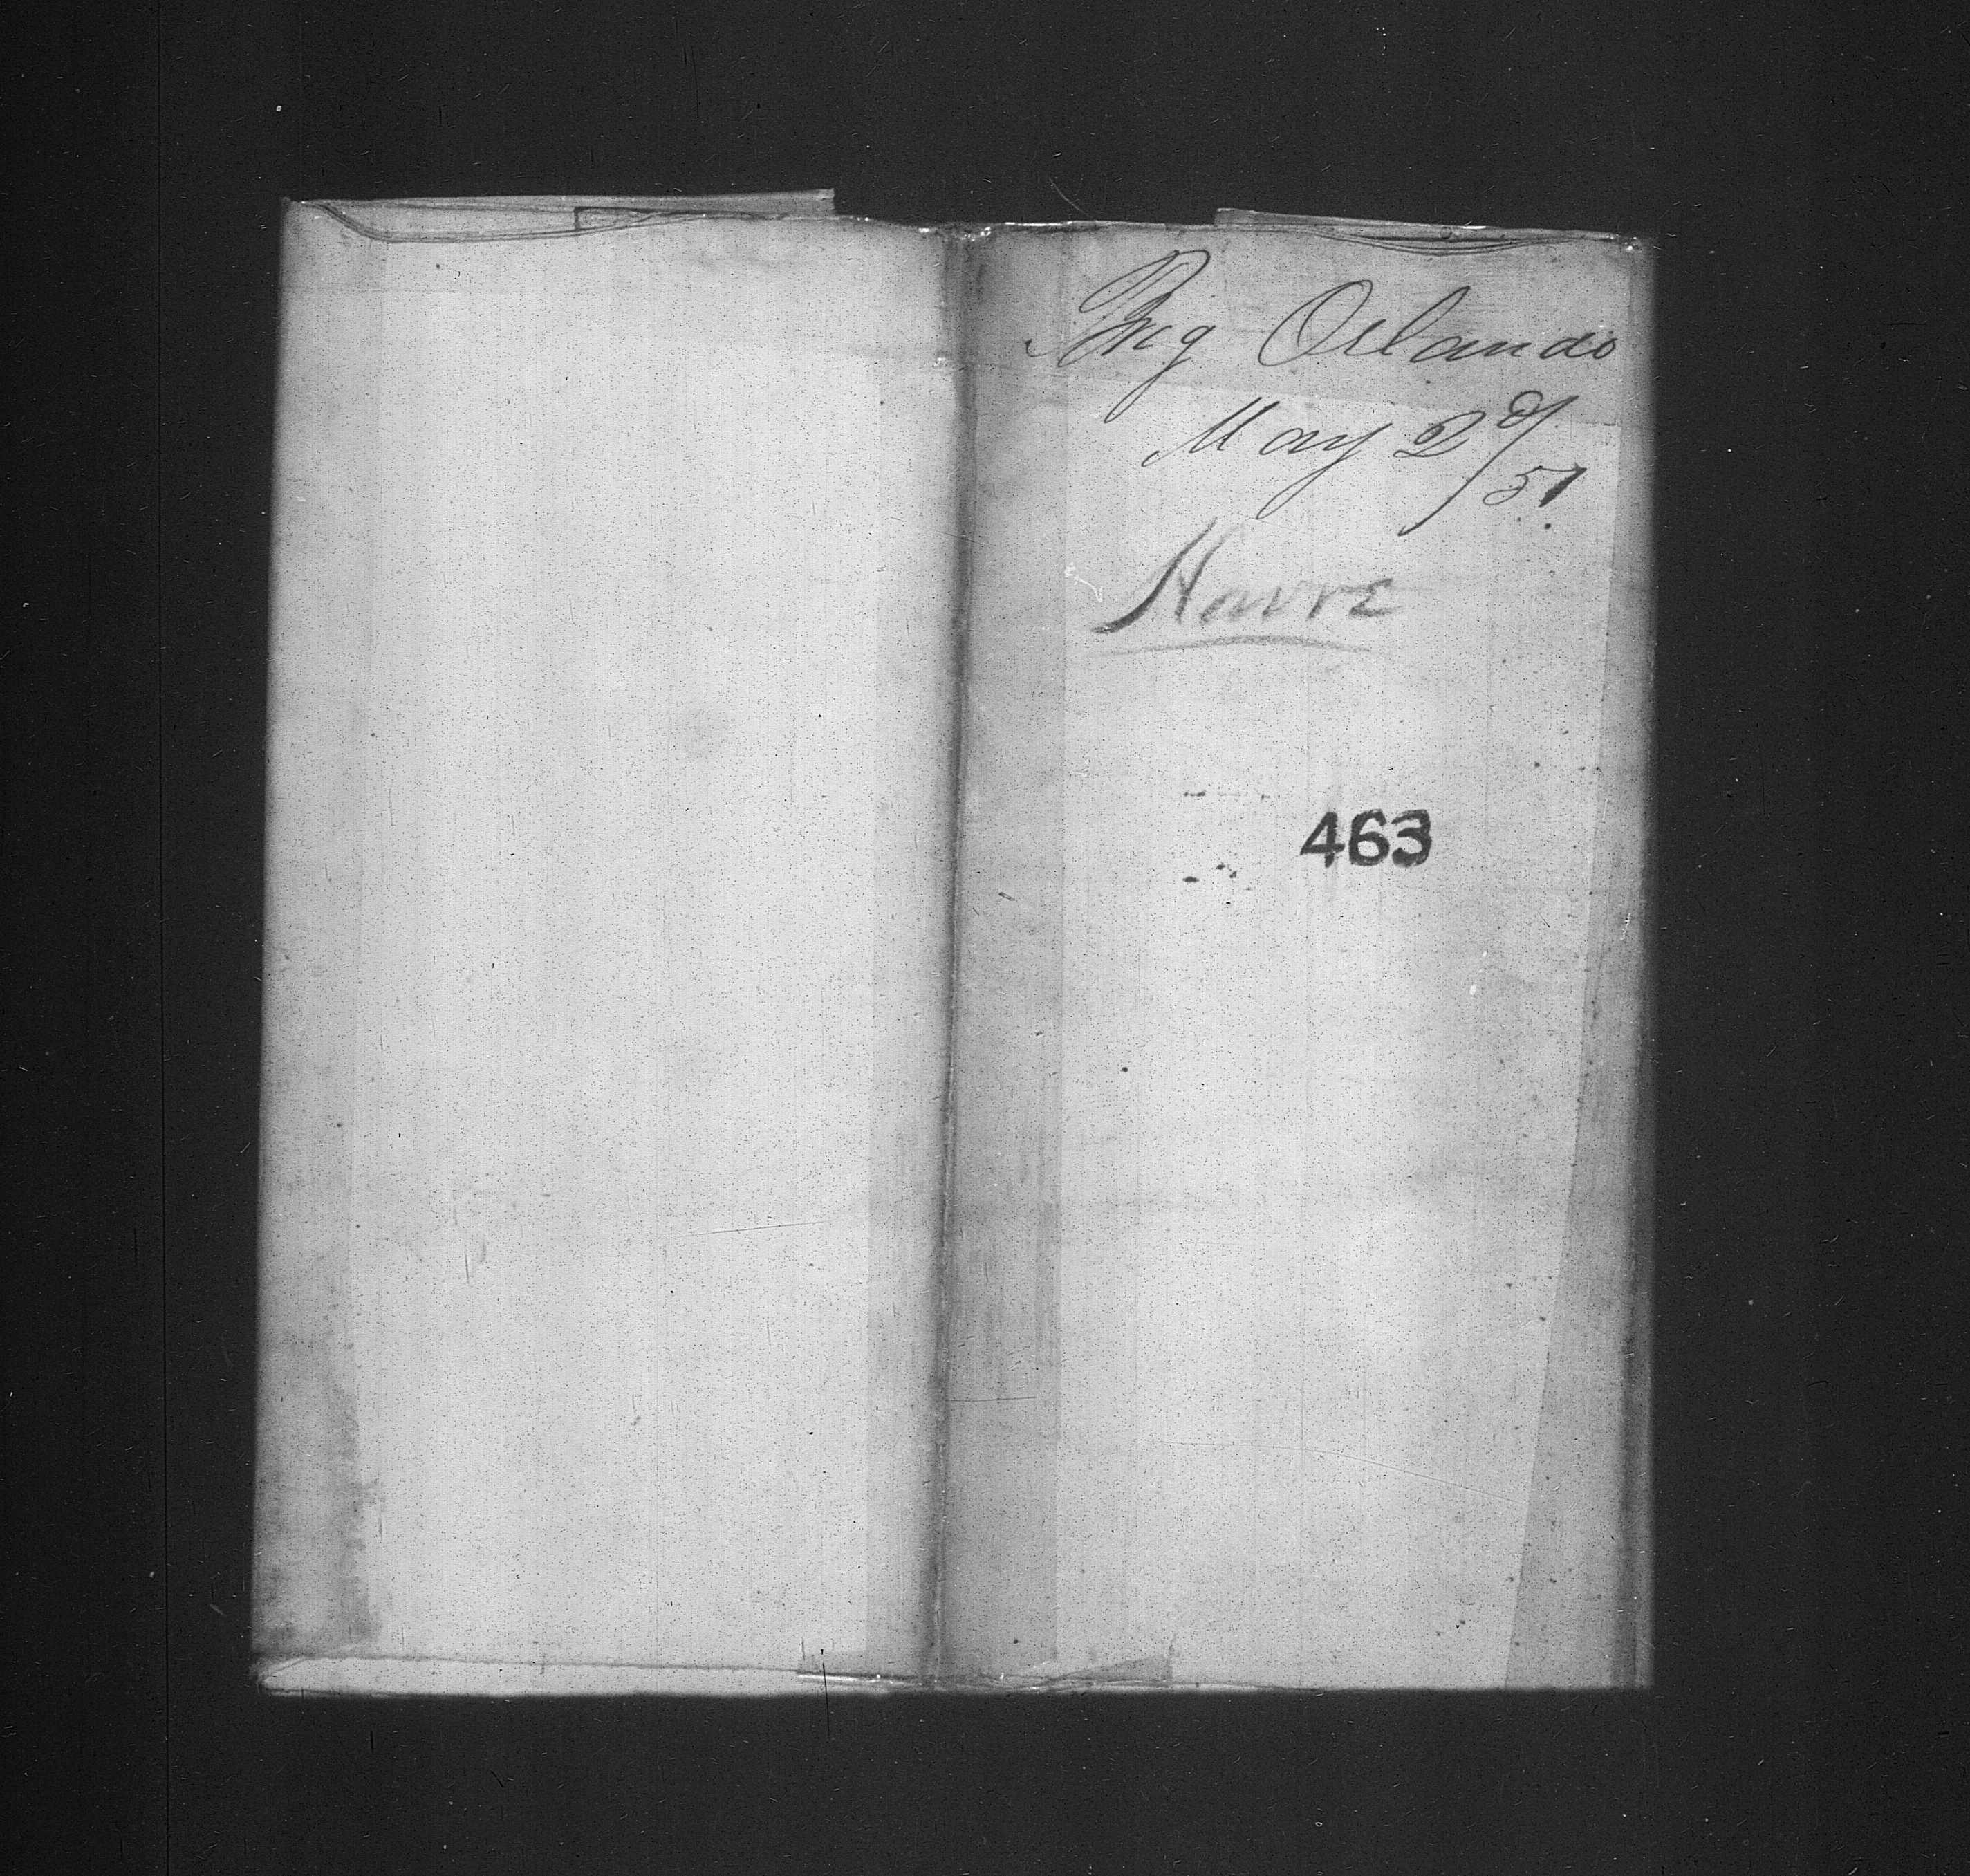 Brig Orlando
May 2d/51.
Havre
463